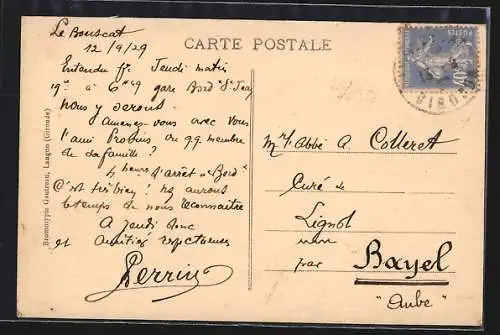 CARTE POSTALE
Le Bouscat
12/9/29
Entendu pr Jeudi matin
19 à 6h49 gare Bord St Jean
nous y serons.
Amenez-vous avec vous
l'ami Probins ou qq. membre
de sa famille?
4 heures d'arrêt à "Bord"
C'est très bien! ns aurons
le temps de nous reconnaître
A Jeudi donc
et amitiés respectueuses
Perrin
Bromotypie Gautreau, Langon (Gironde)
Mr l'Abbé A. Colleret
Curé de
Lignol
par Bayel
"Aube"
POSTES
GIRONDE